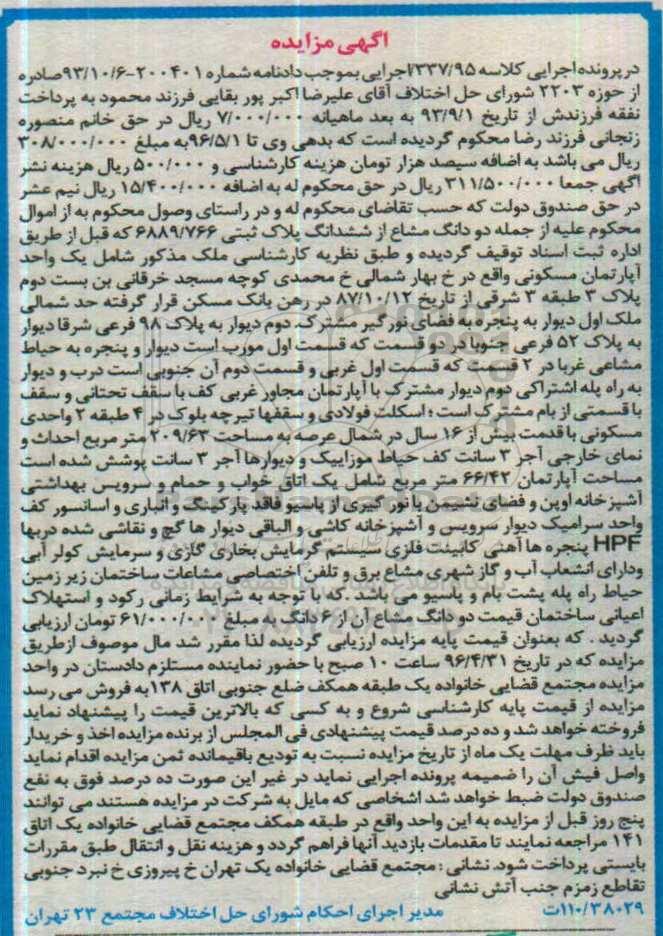 آگهی مزایده
در پرونده اجرایی کلاسه ۳۳۷/۹۵/اجرایی بموجب دادنامه شماره ۲۰۰۴۰۱-۹۳/۱۰/۶صادره
از حوزه ۲۲۰۳ شورای حل اختلاف آقای علیرضا اکبر پور بقایی فرزند محمود به پرداخت
نفقه فرزندش از تاریخ ۹۳/۹/۱ به بعد ماهیانه ۷/۰۰۰/۰۰۰ ریال در حق خانم منصوره
زنجانی فرزند رضا محکوم گردیده است که بدهی وی تا ۹۶/۵/۱به مبلغ ۳۰۸/۰۰۰/۰۰۰
ریال می باشد به اضافه سیصد هزار تومان هزینه کارشناسی و ۵۰۰/۰۰۰ ریال هزینه نشر
آگهی جمعا ۳۱۱/۵۰۰/۰۰۰ ریال در حق محکوم له به اضافه ۱۵/۴۰۰/۰۰۰ ریال نیم عشر
در حق صندوق دولت که حسب تقاضای محکوم له و در راستای وصول محکوم به از اموال
محکوم علیه از جمله دو دانگ مشاع از ششدانگ پلاک ثبتی ۶۸۸۹/۷۶۶ که قبل از طریق
اداره ثبت اسناد توقیف گردیده و طبق نظریه کارشناسی ملک مذکور شامل یک واحد
آپارتمان مسکونی واقع در خ بهار شمالی خ محمدی کوچه مسجد خرقانی بن بست دوم
پلاک ۳ طبقه ۳ شرقی از تاریخ ۸۷/۱۰/۱۲ در رهن بانک مسکن قرار گرفته حد شمالی
ملک اول دیوار به پنجره به فضای نورگیر مشترک، دوم دیوار به پلاک ۹۸ فرعی شرقا دیوار
به پلاک ۵۲ فرعی جنوبا در دو قسمت که قسمت اول مورب است دیوار و پنجره به حیاط
مشاعی غربا در ۲ قسمت که قسمت اول غربی و قسمت دوم آن جنوبی است درب و دیوار
به راه پله اشتراکی دوم دیوار مشترک با آپارتمان مجاور غربی کف با سقف تحتانی و سقف
با قسمتی از بام مشترک است؛ اسکلت فولادی و سقفها تیرچه بلوک در ۴ طبقه ۲ واحدی
مسکونی با قدمت بیش از ۱۶ سال در شمال عرصه به مساحت ۲۰۹/۶۳ متر مربع احداث و
نمای خارجی آجر ۳ سانت کف حیاط موزاییک و دیوارها آجر ۳ سانت پوشش شده است
مساحت آپارتمان ۶۶/۴۲ متر مربع شامل یک اتاق خواب و حمام و سرویس بهداشتی
آشپزخانه اوپن و فضای نشیمن با نورگیری از پاسیو فاقد پارکینگ و انباری و آسانسور کف
واحد سرامیک دیوار سرویس و آشپزخانه کاشی و الباقی دیوار ها گچ و نقاشی شده دربها
HPF پنجره ها آهنی کابینت فلزی سیستم گرمایش بخاری گازی و سرمایش کولر آبی
ودارای انشعاب آب و گاز شهری مشاع برق و تلفن اختصاصی مشاعات ساختمان زیر زمین
حیاط راه پله پشت بام و پاسیو می باشد .که با توجه به شرایط زمانی رکود و استهلاک
اعیانی ساختمان قیمت دو دانگ مشاع آن از ۶ دانگ به مبلغ ۶۱/۰۰۰/۰۰۰ تومان ارزیابی
گردید . که بعنوان قیمت پایه مزایده ارزیابی گردیده لذا مقرر شد مال موصوف ازطریق
مزایده که در تاریخ ۹۶/۴/۳۱ ساعت ۱۰ صبح با حضور نماینده مستلزم دادستان در واحد
مزایده مجتمع قضایی خانواده یک طبقه همکف ضلع جنوبی اتاق ۱۳۸به فروش می رسد
مزایده از قیمت پایه کارشناسی شروع و به کسی که بالاترین قیمت را پیشنهاد نماید
فروخته خواهد شد و ده درصد قیمت پیشنهادی فی المجلس از برنده مزایده اخذ و خریدار
باید ظرف مهلت یک ماه از تاریخ مزایده نسبت به تودیع باقیمانده ثمن مزایده اقدام نماید
واصل فیش آن را ضمیمه پرونده اجرایی نماید در غیر این صورت ده درصد فوق به نفع
صندوق دولت ضبط خواهد شد اشخاصی که مایل به شرکت در مزایده هستند می توانند
پنج روز قبل از مزایده به این واحد واقع در طبقه همکف مجتمع قضایی خانواده یک اتاق
۱۴۱ مراجعه نمایند تا مقدمات بازدید آنها فراهم گردد و هزینه نقل و انتقال طبق مقررات
بایستی پرداخت شود. نشانی : مجتمع قضایی خانواده یک تهران خ پیروزی خ نبرد جنوبی
تقاطع زمزم جنب آتش نشانی
۱۱۰/۳۸۰۲۹ت مدیر اجرای احکام شورای حل اختلاف مجتمع ۲۳ تهران